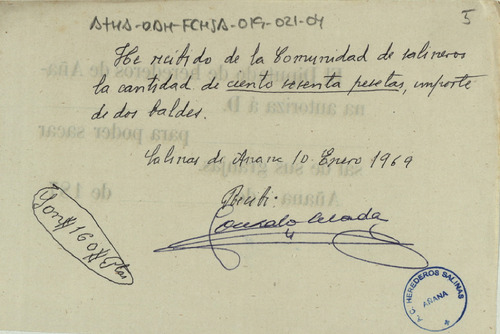 ATHA-DAH-FCHSA-019-021-04
5
He recibido de la Comunidad de salineros
la cantidad de ciento sesenta pesetas, importe
de dos baldes.
Salinas de Anana 10 Enero 1969
Recibi:
Gonzalo
Son # 160 # Ptas
HEREDEROS SALINAS
AÑANA
El Diputado de herederos de Aña-
na autoriza á D.
para poder sacar
sal de sus granjas.
Añana
de
de 18